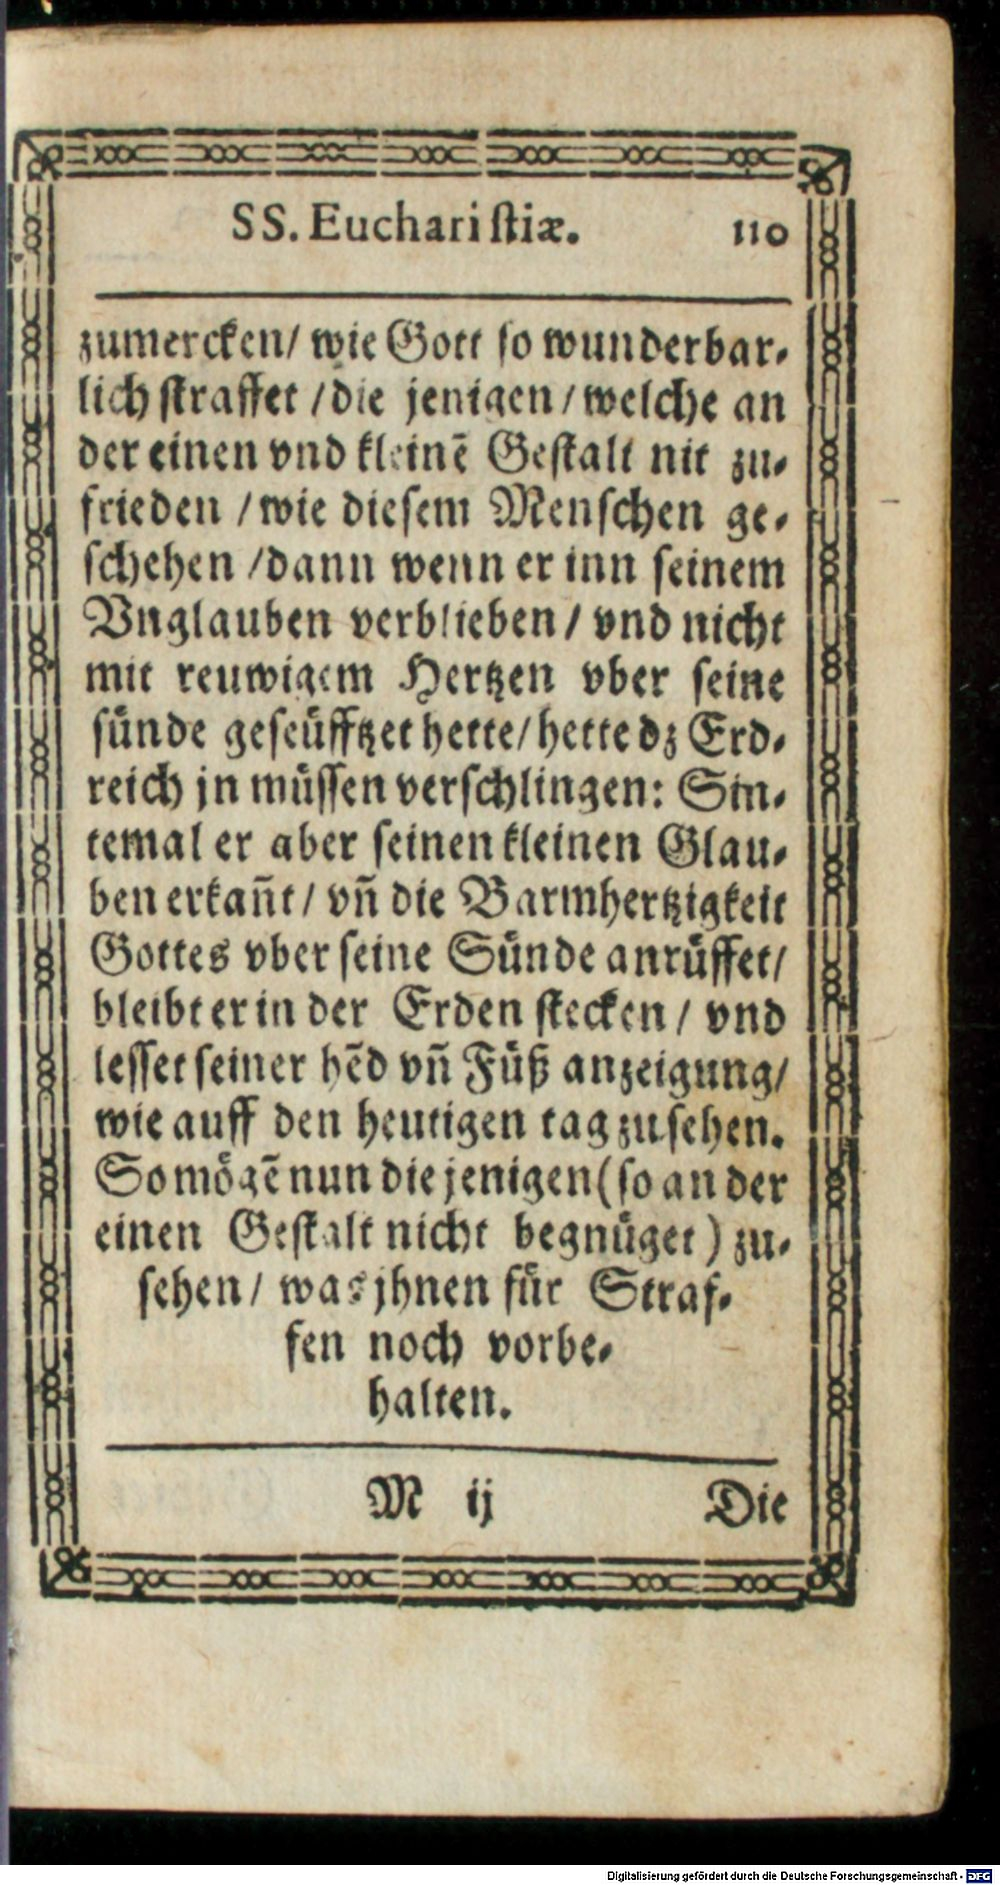 SS. Euchariſtiæ. 110
zumercken/ wie Gott ſo wunderbar-
lich ſtraffet /die jenigen/welche an
der einen vnd kleinẽ Geſtalt nit zu-
frieden /wie dieſem Menſchen ge-
ſchehen /dann wenn er inn ſeinem
Vnglauben verblieben/ vnd nicht
mit reuwigem Hertzen vber ſeine
ſünde geſeüfftzet hette/hette dz Erd-
reich jn müſſen verſchlingen: Sin-
temal er aber ſeinen kleinen Glau-
ben erkañt/ vñ die Barmhertzigkeit
Gottes vber ſeine Sünde anrüffet/
bleibt er in der Erden ſtecken/ vnd
leſſet ſeiner hẽd vñ Füß anzeigung/
wie auff den heutigen tag zuſehen.
So mögẽ nun die jenigen (ſo an der
einen Geſtalt nicht begnüget) zu-
ſehen/ was jhnen für Straf-
fen noch vorbe-
halten.
M ij Die
Digitalisierung gefördert durch die Deutsche Forschungsgemeinschaft - DFG